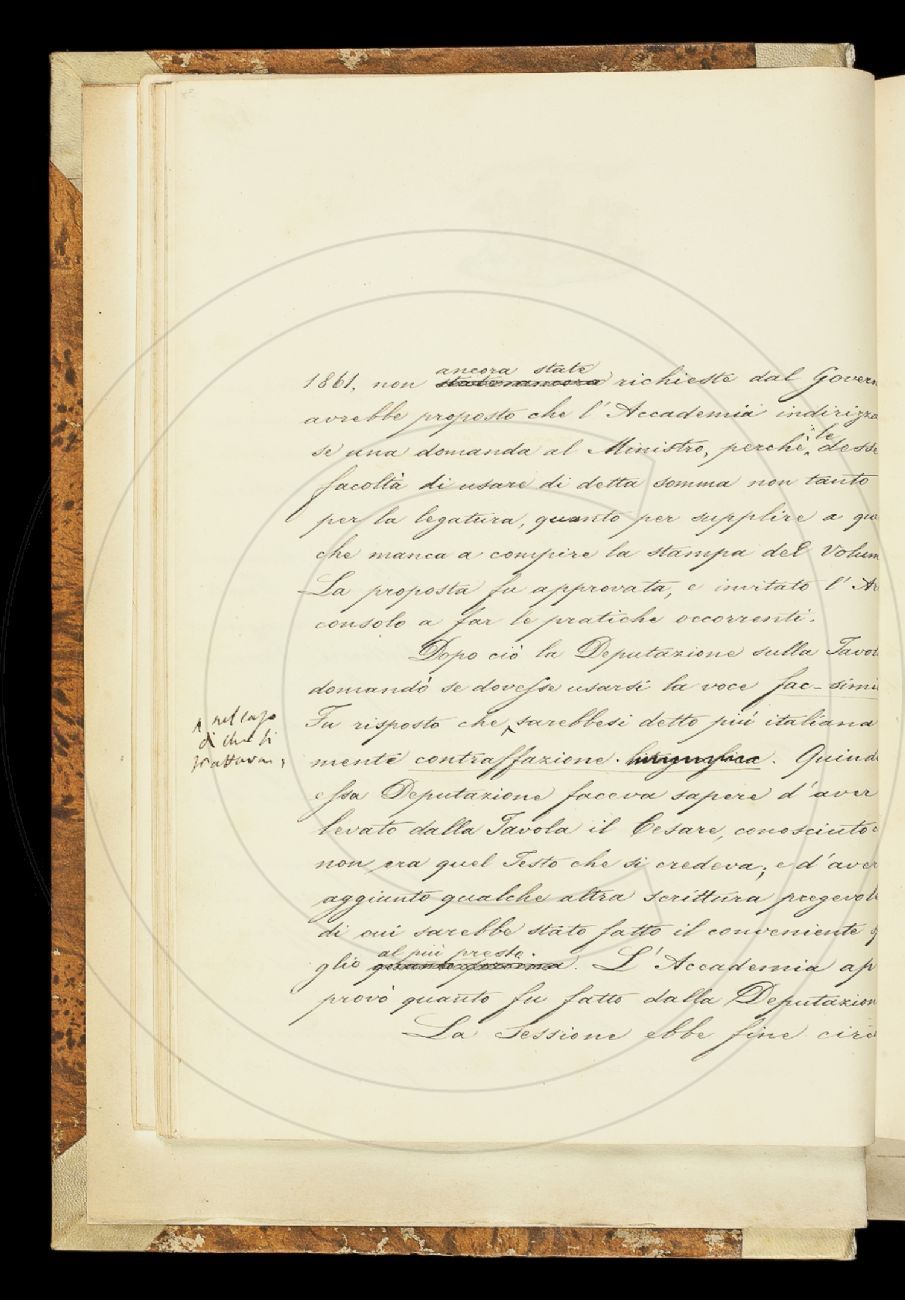 ancora state
1861. non state ancora richieste dal Govern
avrebbe proposto che l' Accademia indirizza
le
se una domanda al Ministro, perchè desse
facoltà di usare di detta somma non tanto
per la legatura, quanto per supplire a que
che manca a compire la stampa del Volum
La proposta fu approvata, e invitato l' Ar
consolo a far le pratiche occorrenti.
Dopo ciò la Deputazione sulla Tavol
domandò se dovesse usarsi la voce fac-simi
Fu risposto che, sarebbesi detto più italiana
nel caso
di che si
trattava,
mente contraffazione. Quind
essa Deputazione faceva sapere d'aver
levato dalla Tavola il Cesare, conosciuto c
non era quel Testo che si credeva; e d'aver
aggiunto qualche altra scrittura pregevol
di cui sarebbe stato fatto il conveniente
al più presto.
glio L' Accademia ap
provò quanto fu fatto dalla Deputazion
La Sessione ebbe fine circ